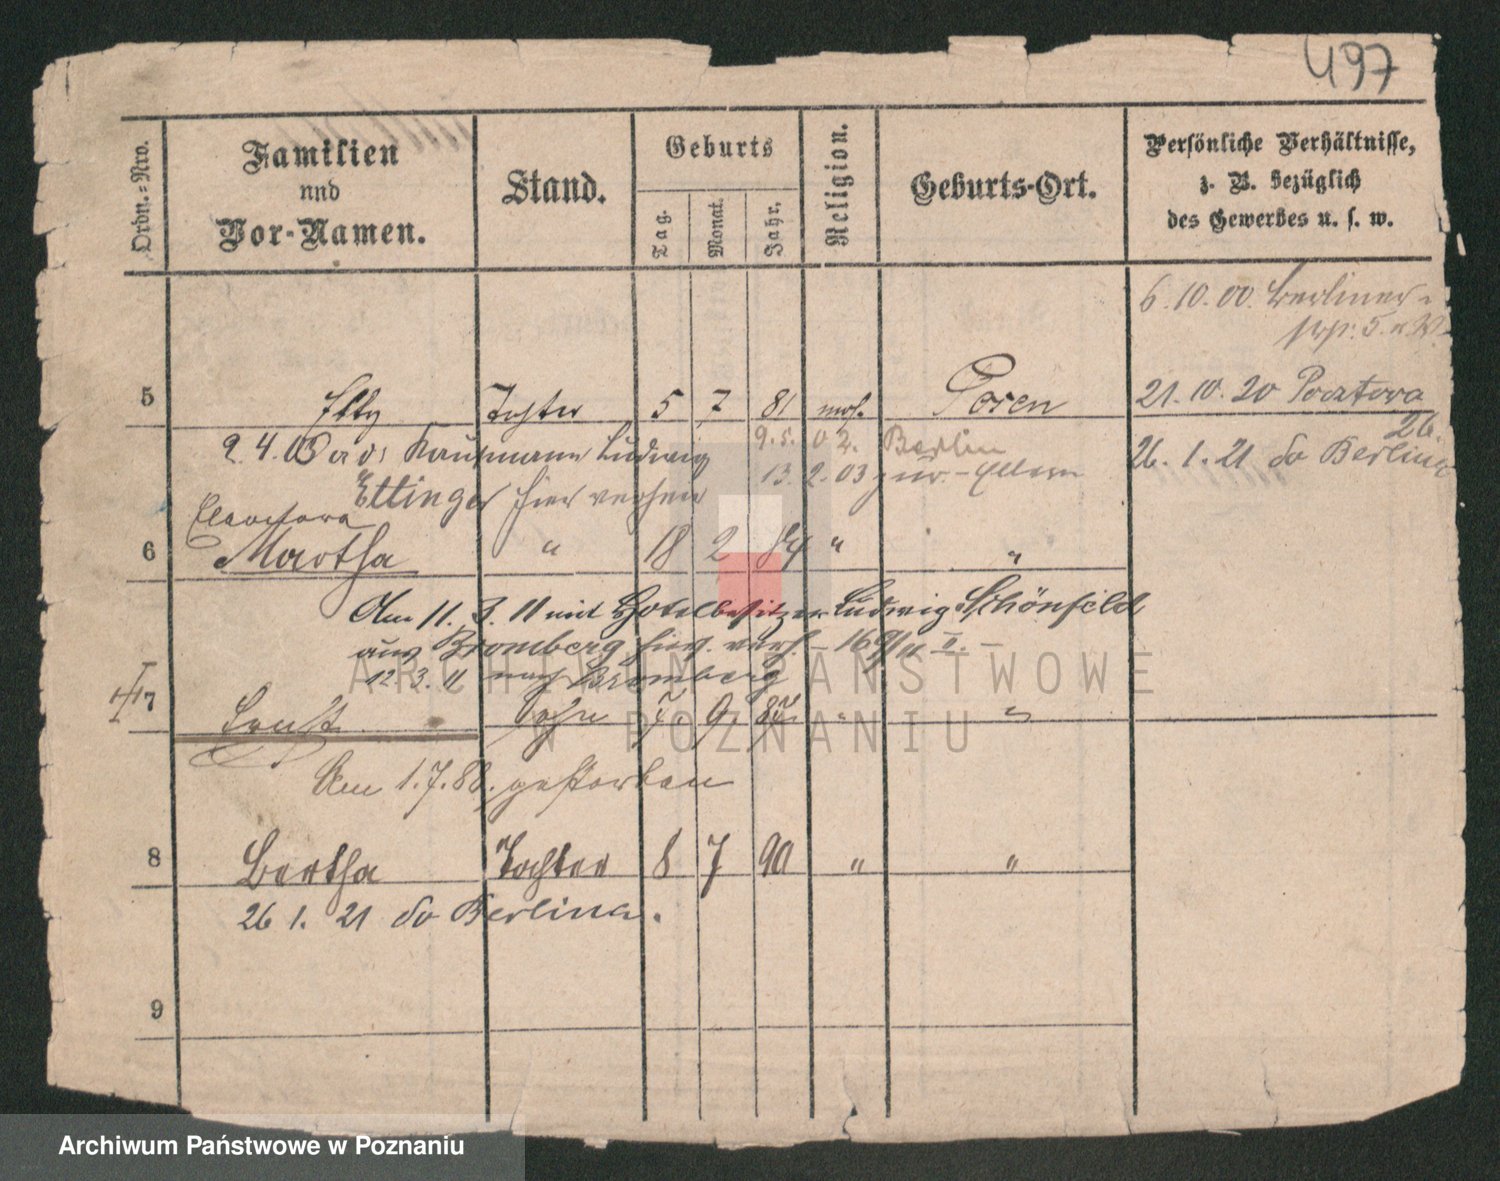 497
Ordn.=Nro.
Familien
und
Vor-Namen.
Stand.
Geburts
Tag.
Monat.
Jahr.
Religion.
Geburts-Ort.
Persönliche Verhältnisse,
z. B. bezüglich
des Gewerbes u. s. w.
6.10.00. Berliner-
5.
5 Elly Tochter 5 7 81 mos. Posen
21.10.20 Pocztowa
26.
26.1.21 do Berlina
9.4.03 Kaufmann Ludwig
Ettinger hier
9.5.02. Berlin
13.2.03 zur. Eltern
6 Martha " 18 2 84 " "
Am 11.3.11 mit Hotelbesitzer Ludwig Schönfeld
aus Bromberg hier. verh. - 169/11 II. -
12.3.11 nach Bromberg
7 Ernst Sohn 7. 9. 87. " "
Am 1.7.88. gestorben
8 Bertha Tochter 8 7 90 " "
26 1. 21 do Berlina.
9
ARCHIWUM PAŃSTWOWE
W POZNANIU
Archiwum Państwowe w Poznaniu